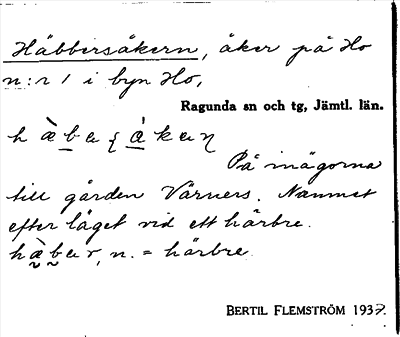 Häbbersåkern, åker på Ho
n:r 1 i byn Ho,
Ragunda sn och tg, Jämtl. län.
På inägorna
till gården Värners. Namnet
efter läget vid ett härbre.
n. = härbre.
BERTIL FLEMSTRÖM 1937.